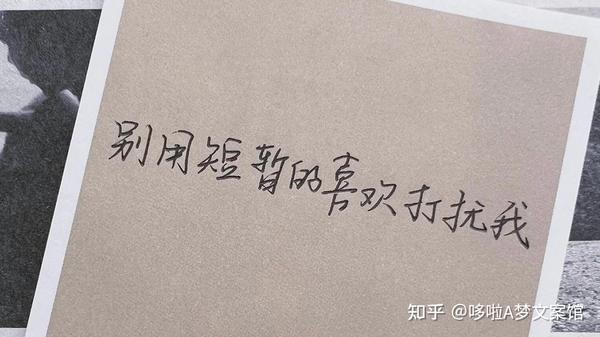 别用短暂的喜欢打扰我
知乎 @哆啦A梦文案馆